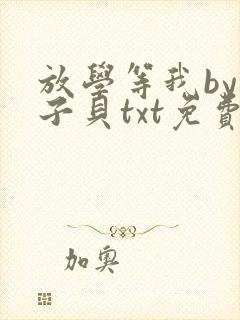 放學等我by
子貝txt免費
加奧